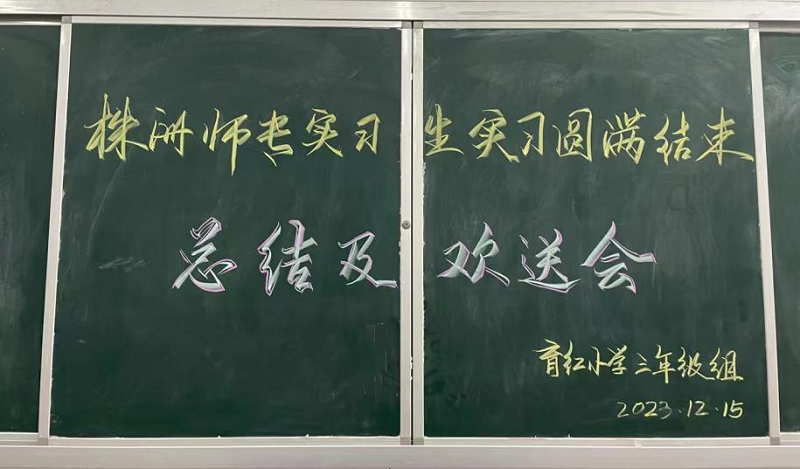 株洲师专实习生实习圆满结束
总结及欢送会
育红小学三年级组
2023.12.15